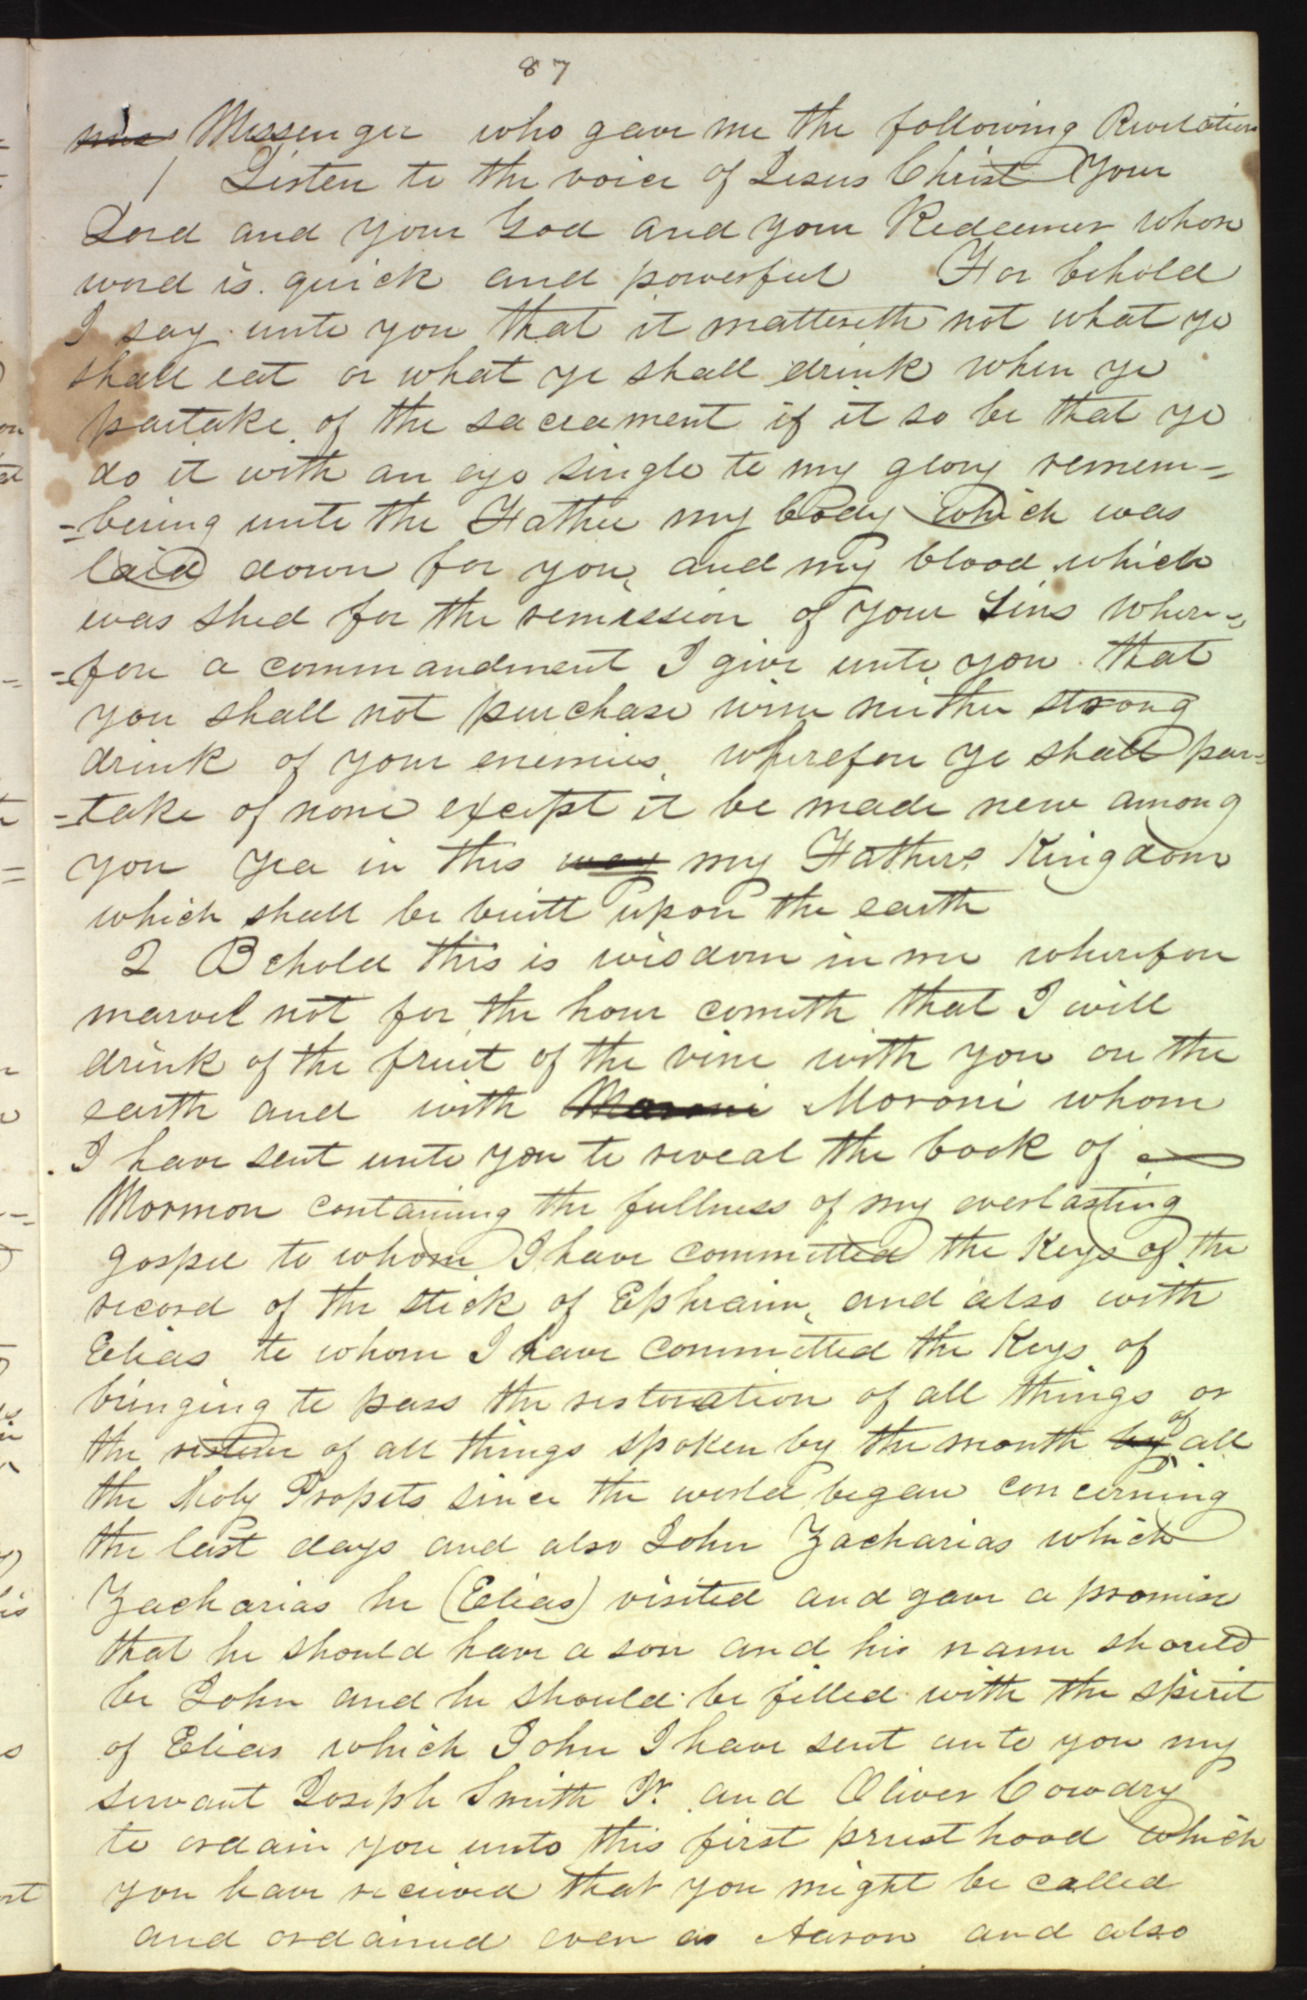 87
Messenger who gave me the following Revelation
1 Listen to the voice of Jesus Christ your
Lord and your God and your Redeemer whose
word is quick and powerful For behold
I say unto you that it mattereth not what ye
shall eat or what ye shall drink when ye
partake of the sacrament if it so be that ye
do it with an eye single to my glory remem=
=bering unto the Father my body which was
laid down for you, and my blood which
was shed for the remission of your Sins where=
=fore a commandment I give unto you that
you shall not purchase wine neither strong
drink of your enemies, wherefore ye shall par=
=take of none except it be made new among
you yea in this way my Fathers Kingdom
which shall be built upon the earth
2 Behold this is wisdom in me wherefore
marvel not for the hour cometh that I will
drink of the fruit of the vine with you on the
earth and with Maroni Moroni whom
I have sent unto you to reveal the book of
Mormon containing the fullness of my everlasting
gospel to whom I have committed the Keys of the
record of the stick of Ephraim, and also with
Elias to whom I have committed the Keys of
bringing to pass the restoration of all things or
the restore of all things spoken by the mouth by of all
the Holy Propets since the world began concerning
the last days and also John Zacharias which
Zacharias he (Elias) visited and gave a promise
that he should have a son and his name should
be John and he should be filled with the spirit
of Elias which John I have sent unto you my
servant Joseph Smith Jr. and Oliver Cowdry
to ordain you unto this first priesthood which
you have received that you might be called
and ordained even as Aaron and also